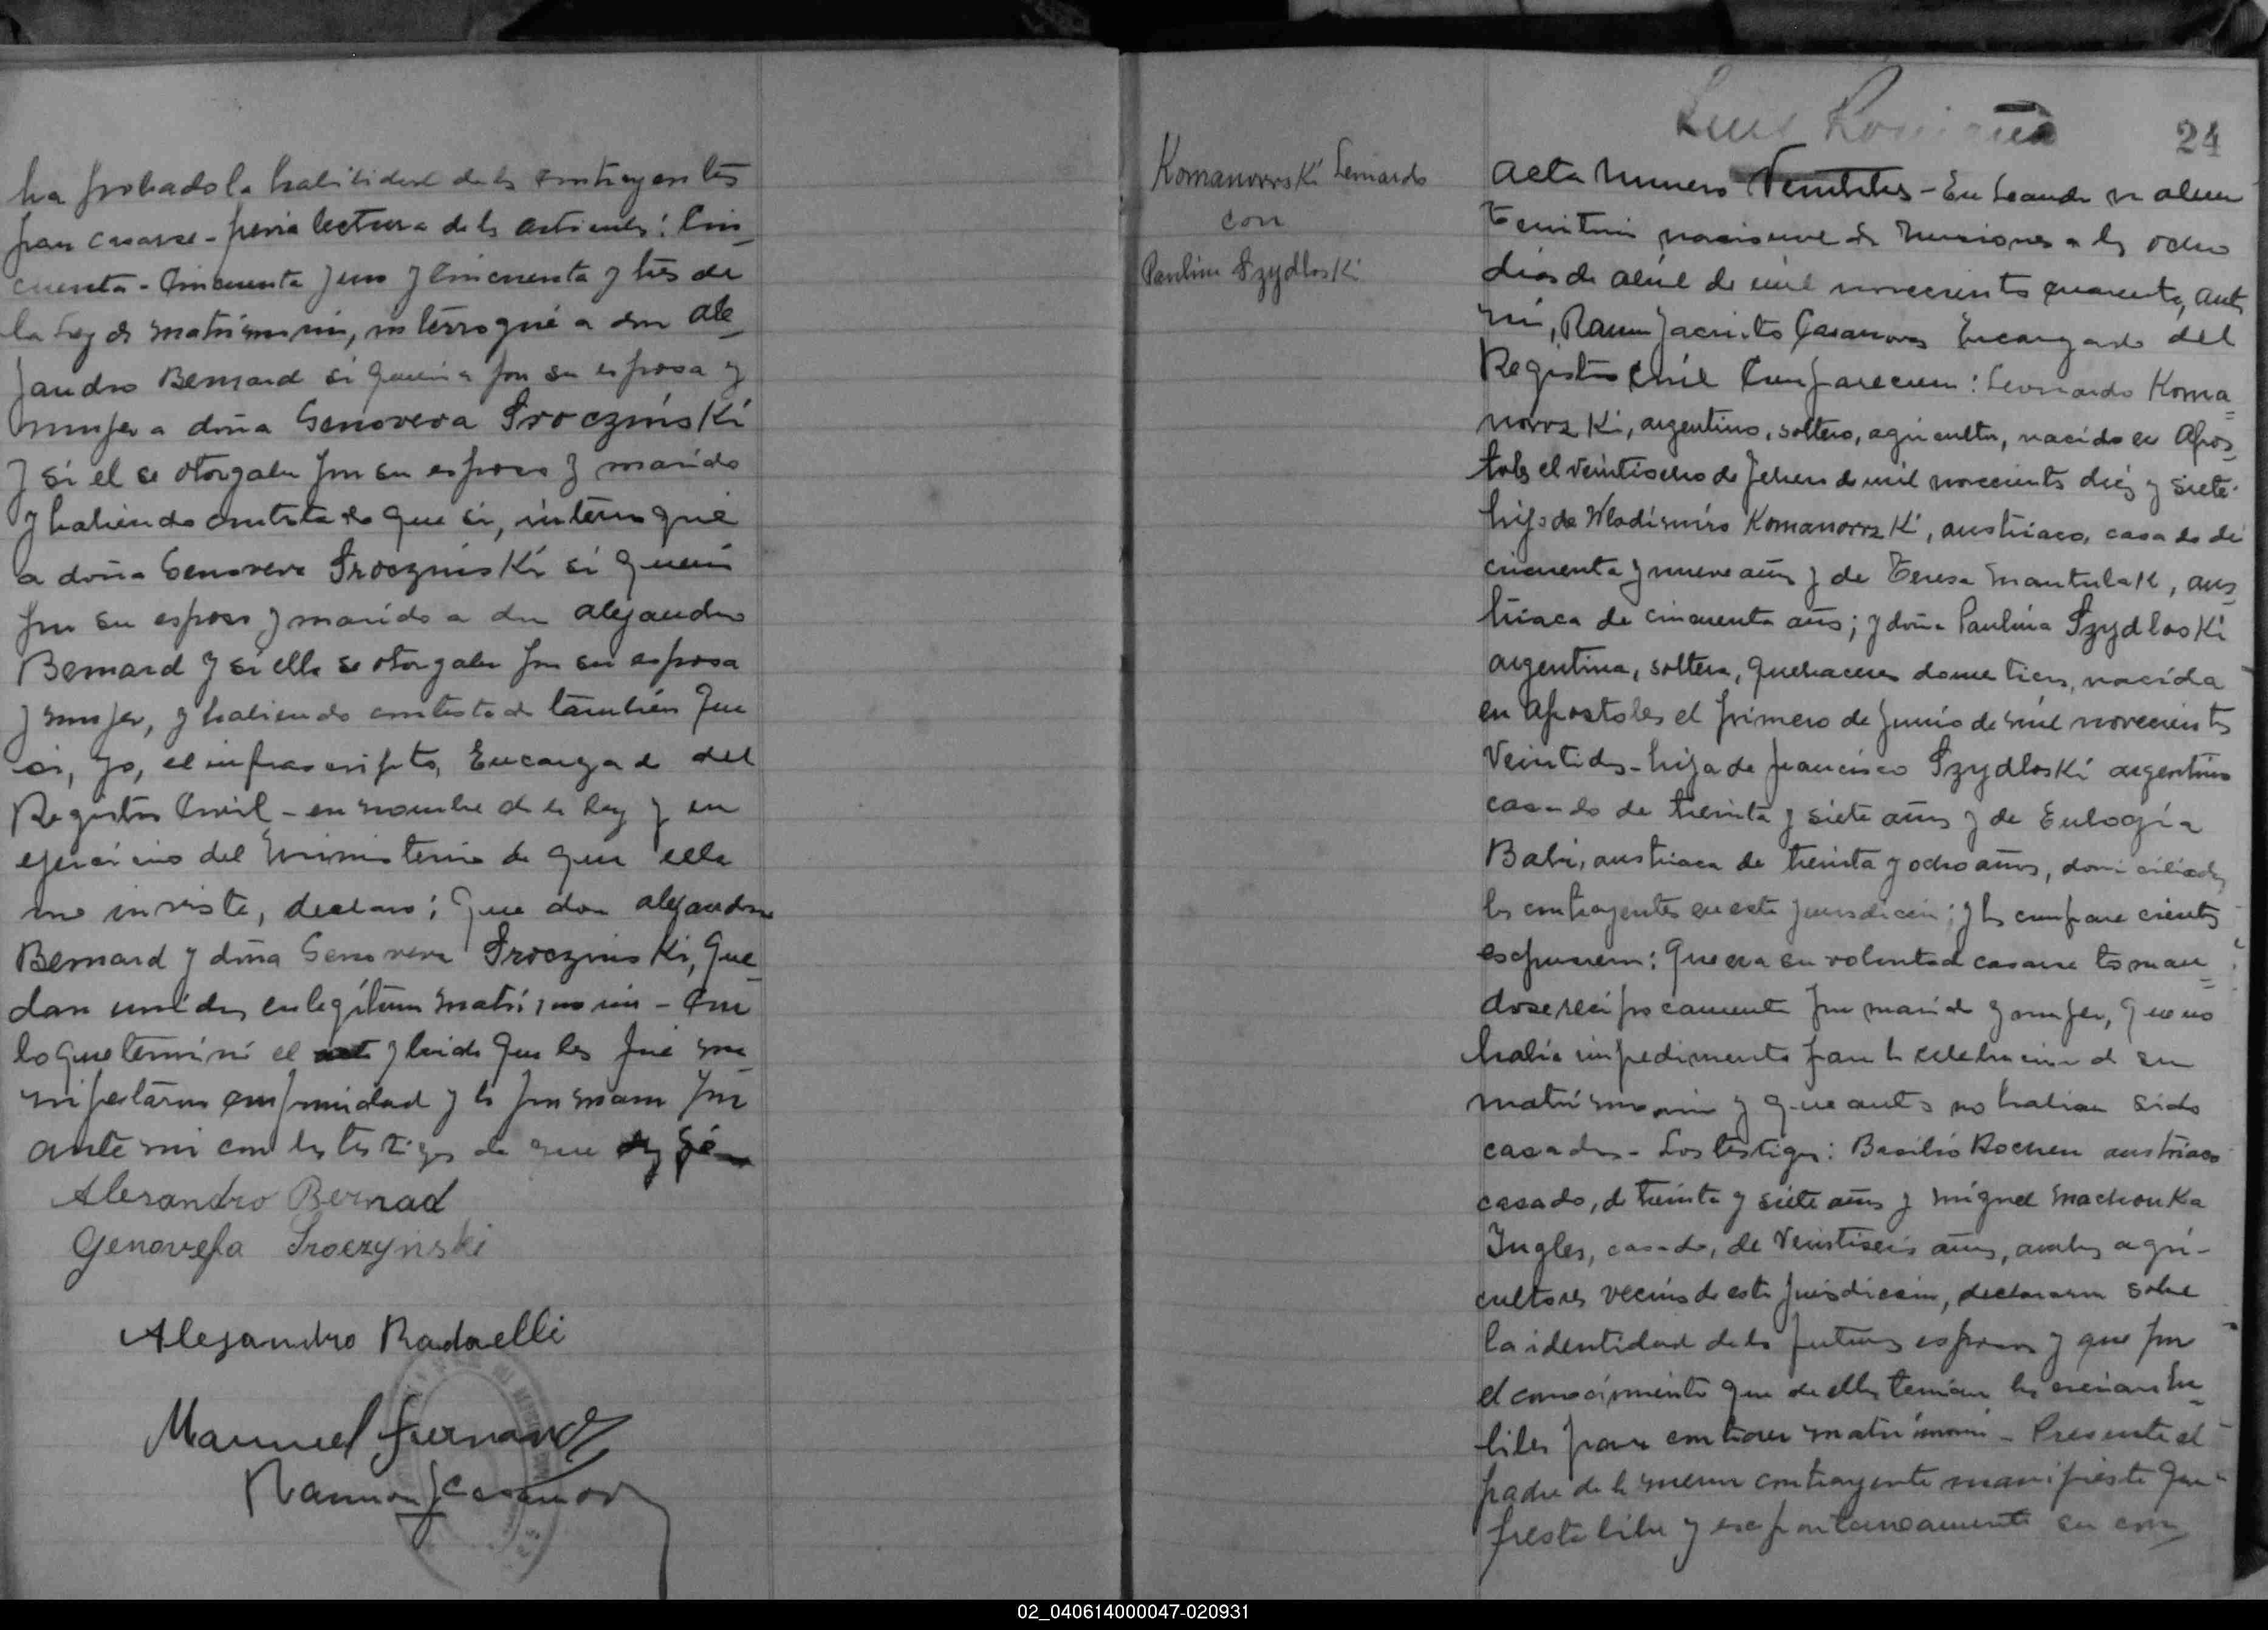 ha probado la habilidad de los contrayentes
para casarse - previa lectura de los articulos: Cin_
cuenta - Cincuenta y uno y Cincuenta y tres de
la Ley de matrimonio, interrogué a don Ale_
jandro Bernard si queria por su esposa y
mujer a doña Genoveva Sroczinski
y si el se otorgaba por su esposo y marido
y habiendo contestado que si, interrogué
a doña Genoveva Sroczinski si queria
por su esposo y marido a don Alejandro
Bernard y si ella se otorgaba por su esposa
y mujer, y habiendo contestado también que
si, yo, el infrascripto, Encargado del
Registro Civil - en nombre de la ley y en
ejercicio del Ministerio de que ella
me inviste, declaro; Que don Alejandro
Bernard y doña Genoveva Sroczinski, que_
dan unidos en legítimo matrimonio - Con
lo que terminó el acto y leido que les fué ma_
nifestaron conformidad y la firmaron por
ante mi con los testigos de que
Alesandro Bernad
Genovefa Sroczynski
Alejandro Radaelli
Manuel Fernandez
Ramon J Casanova
Komanovrski Leonardo
con
Paulina Szydloski
24
Acta Numero Veintitres - En Leandro N Alem
Territorio nacional de Misiones a los ocho
dias de Abril de mil novecientos cuarenta, ante
mi, Ramon Jacinto Casanova Encargado del
Registro Civil Comparecieron: Leonardo Koma=
novrski, argentino, soltero, agricultor, nacido en Apos_
toles el veintiocho de Febrero de mil novecientos diez y siete.
hijo de Wladimiro Komanovrski, austriaco, casado de
cincuenta y nueve años y de Teresa Mantulak, aus_
triaca de cincuenta años; y doña Paulina Szydloski
argentina, soltera, quehaceres domesticos, nacida
en Apostoles el primero de Junio de mil novecientos
Veintidos - hija de Francisco Szydloski argentino
casado de treinta y siete años y de Eulogía
Babi, austriaca de treinta y ocho años, domiciliados
los contrayentes en esta jurisdiccion; y los comparecientes
expusieron: Que era su voluntad casarse toman=
dose reciprocamente por marido y mujer, que no
habia impedimento para la celebracion de su
matrimonio y que antes no habian sido
casados - Los testigos: Basilio Rochen austriaco
casado, de treinta y siete años y Miguel Machonka
Ingles, casado, de Veintiseis años, ambos agri-
cultores vecinos de esta jurisdiccion, declararon sobre
la identidad de los futuros esposos y que por
el conocimiento que de ellos tenian los creian ha_
biles para contraer matrimonio - Presente el
padre de la menor contrayente manifiesta que
presta libre y espontaneamente su con_
02_040614000047-020931